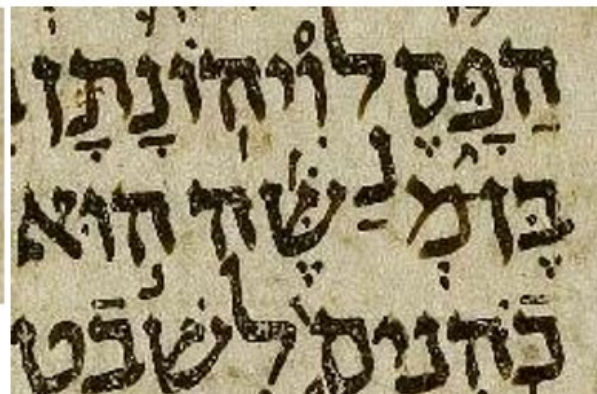 הַפָּסֶל וִיהוֹנָתָן
בֶּן מְנַשֶּׁה הוּא
כֹּהנים לשׁבט